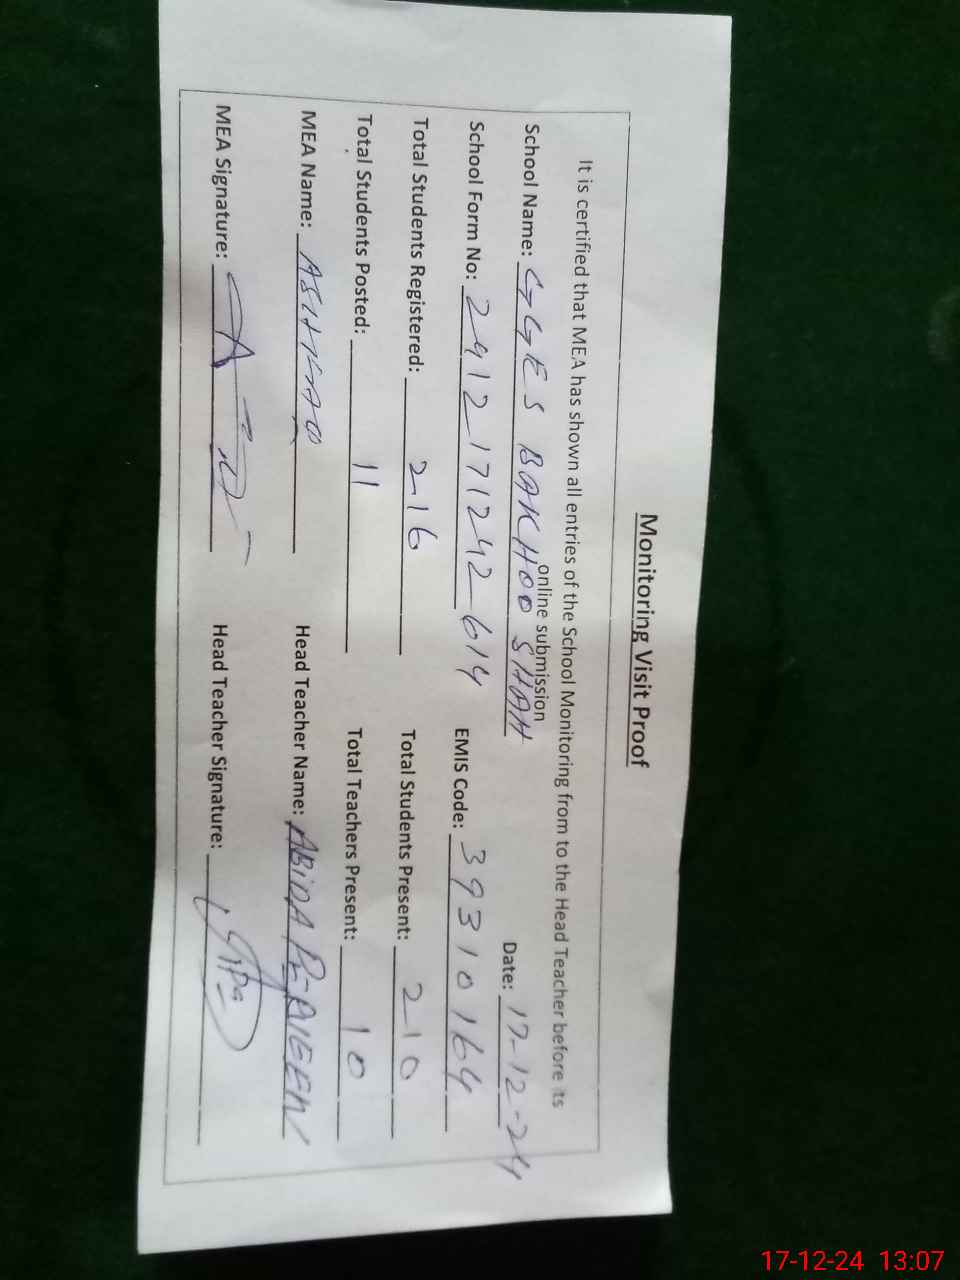 Monitoring Visit Proof
It is certified that MEA has shown all entries of the School Monitoring from to the Head Teacher before its
online submission
School Name: GGES BAKHOO SHAH Date: 17-12-24
School Form No: 2412171242614 EMIS Code: 39310164
Total Students Registered: 216 Total Students Present: 210
Total Students Posted: 11 Total Teachers Present: 10
MEA Name: Head Teacher Name: ABIDA
MEA Signature: Head Teacher Signature:
17-12-24 13:07